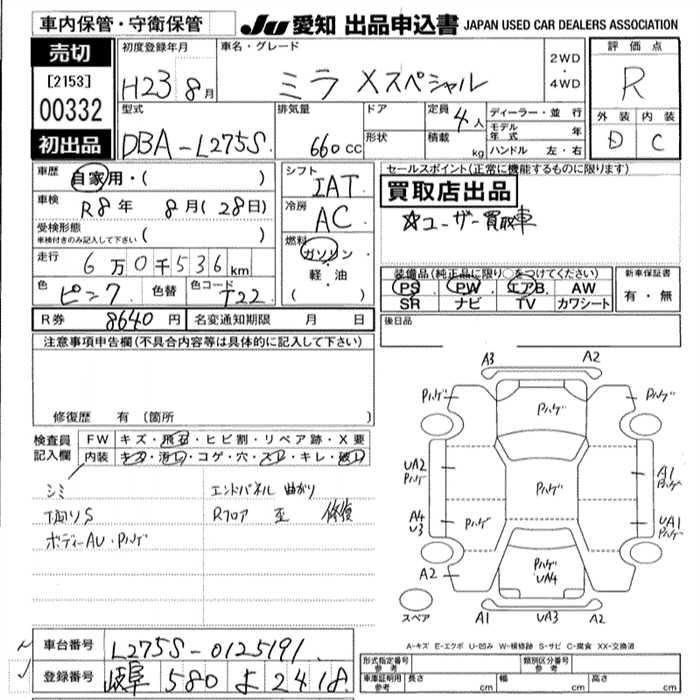 車内保管・守衛保管
JU 愛知 出品申込書 JAPAN USED CAR DEALERS ASSOCIATION
売切
[2153]
00332
初出品
初度登録年月
H23 8月
車名・グレード
ミラ Xスペシャル
2WD
・
4WD
評価点
R
外装 内装
D C
型式
DBA-L275S
排気量
660cc
ドア
形状
定員 4人
積載 kg
ディーラー・並行
モデル年式 年
ハンドル 左・右
車歴 自家用・( )
車検 R8年 8月(28日)
受検形態
車検付きのみ記入して下さい ( )
走行 6万0千536km
色 ピンク 色替 色コード T22
シフト
IAT
冷房
AC
燃料
ガソリン・
軽・油
( )
セールスポイント(正常に機能するものに限ります)
買取店出品
☆ユーザー買取車
装備品(純正品に限り○をつけてください)
PS PW エアB AW
SR ナビ TV カワシート
新車保証書
有・無
R券 8640円 名変通知期限 月 日
後日品
注意事項申告欄(不具合内容等は具体的に記入して下さい)
修復歴 有(箇所 )
検査員記入欄
FW キズ・飛石・ヒビ割・リペア跡・X要
内装 キズ・汚れ・コゲ・穴・スレ・キレ・破れ
シミ
下回りS
ボディーAU・Pハゲ
エンドパネル 曲がり
Rフロア 歪 修復
A3 A2
Pハゲ Pハゲ Pハゲ
UA2 Pハゲ
Pハゲ
A1 Pハゲ
A4 U3
Pハゲ
UA1 Pハゲ
Pハゲ UA4
A2
スペア
A1 UA3 A2
A-キズ E-エクボ U-凹み W-補修跡 S-サビ C-腐食 XX-交換済
車台番号 L275S-0125191
登録番号 岐阜 580 よ 2418
形式指定番号 参考
類別区分番号 参考
車庫証明用 参考 長さ cm 幅 cm 高さ cm